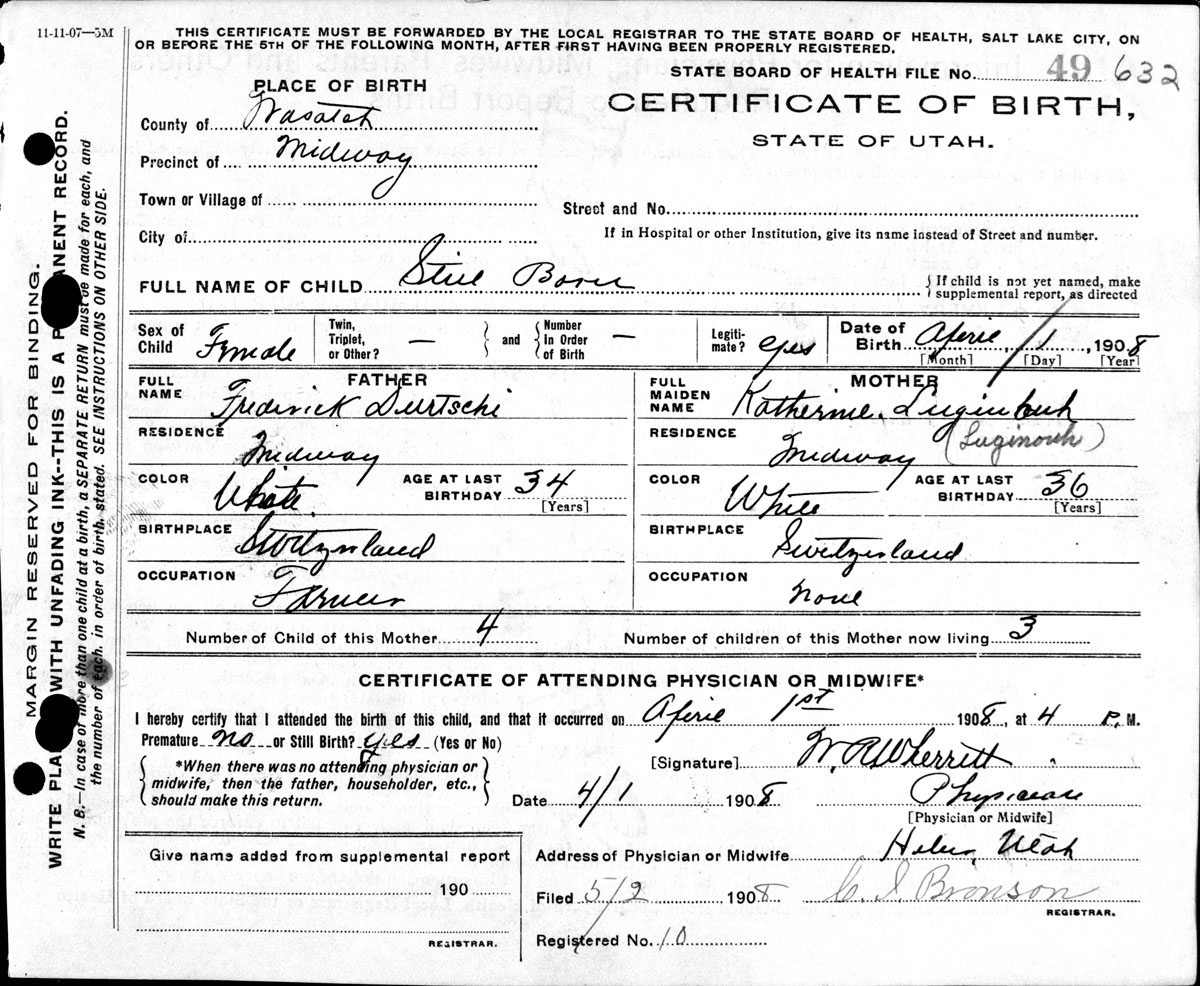 11-11-07—5M
THIS CERTIFICATE MUST BE FORWARDED BY THE LOCAL REGISTRAR TO THE STATE BOARD OF HEALTH, SALT LAKE CITY, ON
OR BEFORE THE 5TH OF THE FOLLOWING MONTH, AFTER FIRST HAVING BEEN PROPERLY REGISTERED.
STATE BOARD OF HEALTH FILE No. 49 632
CERTIFICATE OF BIRTH,
STATE OF UTAH.
PLACE OF BIRTH
County of Wasatch
Precinct of Midway
Town or Village of
City of
Street and No.
If in Hospital or other Institution, give its name instead of Street and number.
FULL NAME OF CHILD Still Born
{ If child is not yet named, make
supplemental report, as directed
Sex of Child Female
Twin, Triplet, or Other? —
and
Number In Order of Birth —
Legiti-mate? Yes
Date of Birth April 1, 1908
[Month] [Day] [Year]
FATHER
FULL NAME Fredrick Durtschi
RESIDENCE Midway
COLOR White
AGE AT LAST BIRTHDAY 34
[Years]
BIRTHPLACE Switzerland
OCCUPATION Farmer
MOTHER
FULL MAIDEN NAME Katherine Luginbuh
(Luginouh)
RESIDENCE Midway
COLOR White
AGE AT LAST BIRTHDAY 36
[Years]
BIRTHPLACE Switzerland
OCCUPATION None
Number of Child of this Mother 4
Number of children of this Mother now living 3
CERTIFICATE OF ATTENDING PHYSICIAN OR MIDWIFE*
I hereby certify that I attended the birth of this child, and that it occurred on April 1st 1908, at 4 P. M.
Premature No or Still Birth? Yes (Yes or No)
*When there was no attending physician or
midwife, then the father, householder, etc.,
should make this return.
[Signature] W. R. Wherritt
Date 4/1 1908
Physician
[Physician or Midwife]
Give name added from supplemental report
190
REGISTRAR.
Address of Physician or Midwife Heber, Utah
Filed 5/2 1908 C. I. Bronson
REGISTRAR.
Registered No. 10
MARGIN RESERVED FOR BINDING.
WRITE WITH UNFADING INK--THIS IS A RECORD.
N. B.—In case of more than one child at a birth, a SEPARATE RETURN must be made for each, and
the number of each, in order of birth, stated. SEE INSTRUCTIONS ON OTHER SIDE.